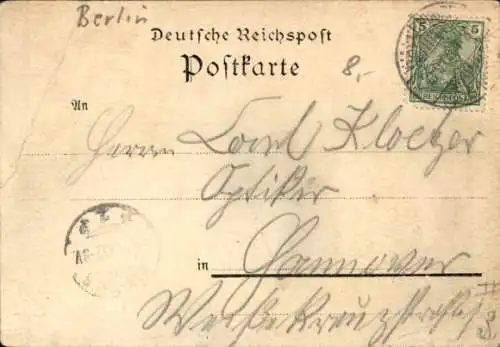 Berlin
Deutsche Reichspost
Postkarte
8,-
5 5
REICHSPOST
An
Herrn Carl Kloetzer
Optiker
in Hannover
Weiße Kreuzstraße